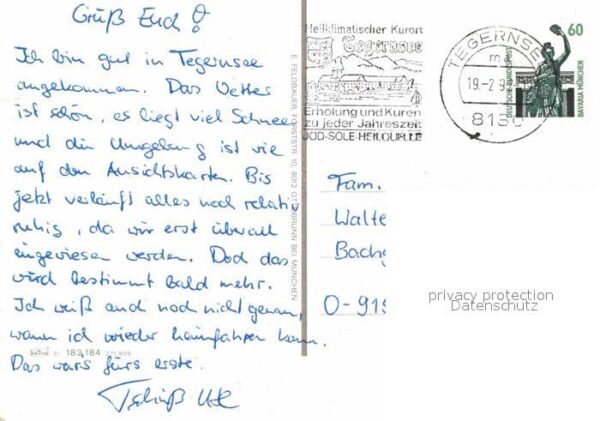 Grüß Euch!
Ich bin gut in Tegernsee
angekommen. Das Wetter
ist schön, es liegt viel Schnee
und die Umgebung ist wie
auf den Ansichtskarten. Bis
jetzt verläuft alles noch relativ
ruhig, da wir erst überall
eingewiesen werden. Doch das
wird bestimmt bald mehr.
Ich weiß auch noch nicht genau,
wann ich wieder heimfahren kann.
Das wars fürs erste.
Tschüß
182 184
E. FELDBAUER, FORSTSTR. 10, 8012 OTTOBRUNN BEI MÜNCHEN
Heilklimatischer Kurort
Tegernsee
Erholung und Kuren
zu jeder Jahreszeit
JOD-SOLE-HEILQUELLE
TEGERNSEE
19.-2.9
8180
60
DEUTSCHE BUNDESPOST
BAVARIA MÜNCHEN
Fam.
Walte
Bachg
O-919
privacy protection
Datenschutz